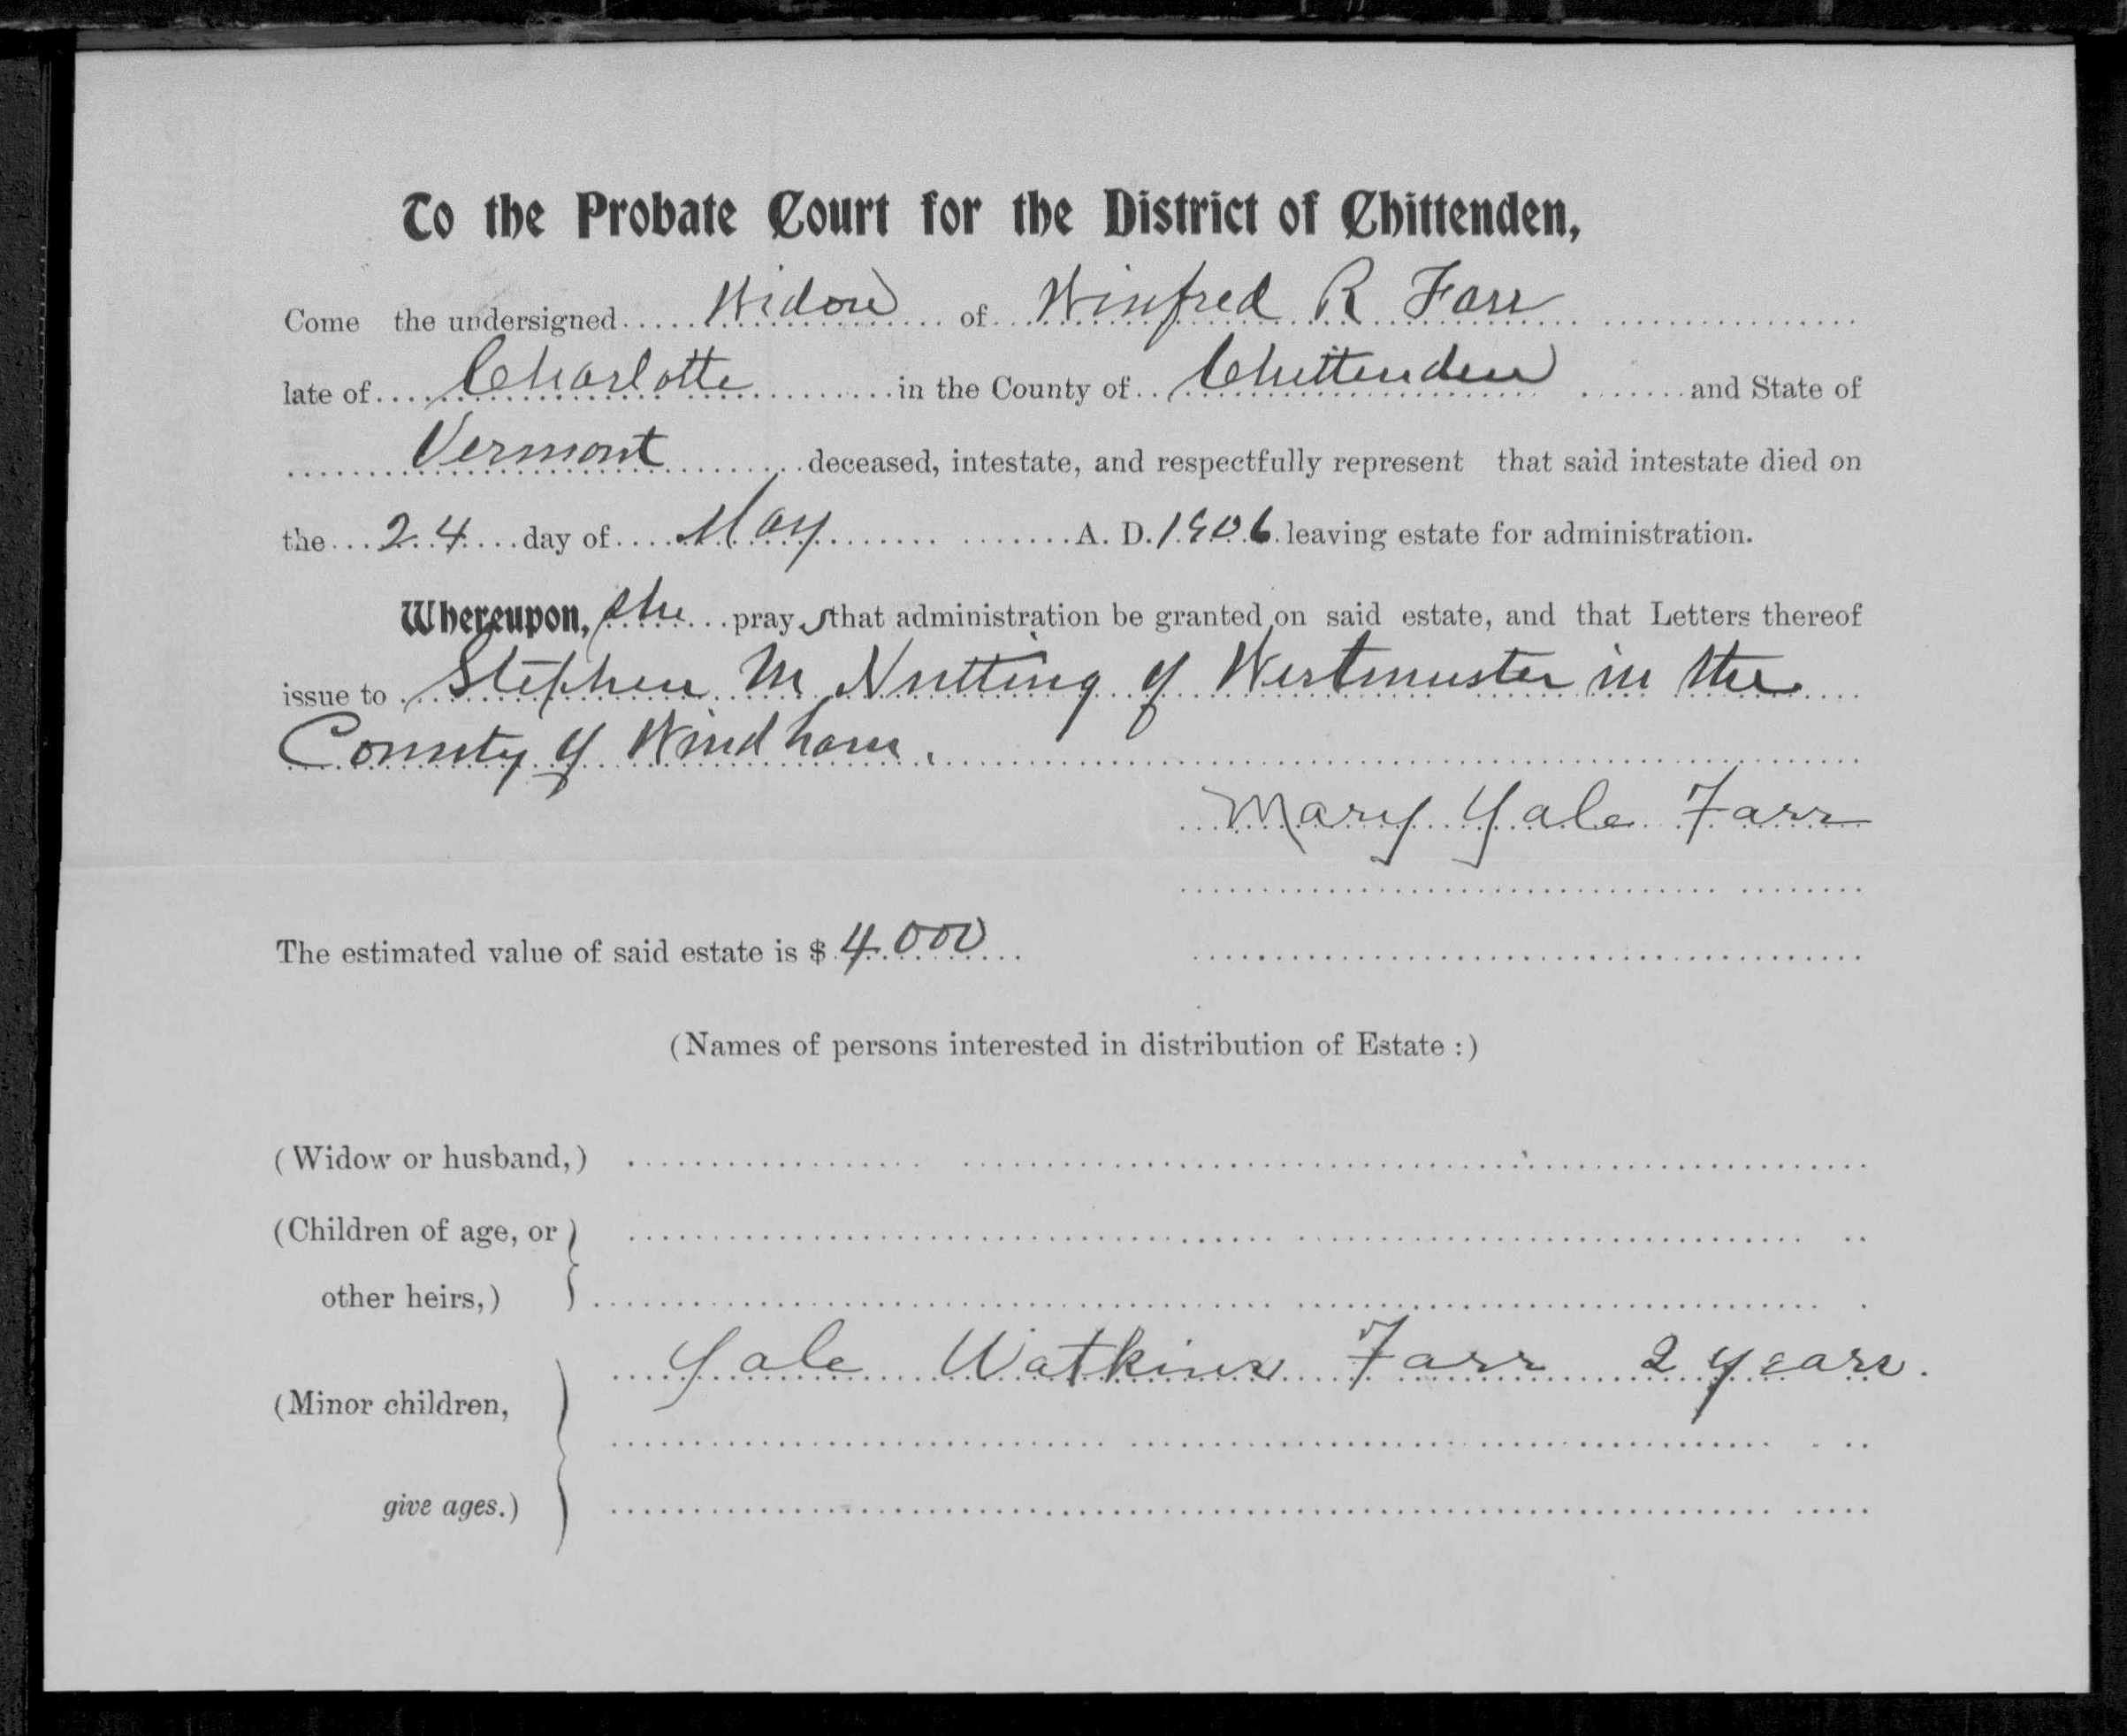 To the Probate Court for the District of Chittenden,
Come the undersigned Widow of Winfred R Farr
late of Charlotte in the County of Chittenden and State of
Vermont deceased, intestate, and respectfully represent that said intestate died on
the 24 day of May A. D. 1906 leaving estate for administration.
Whereupon, she prays that administration be granted on said estate, and that Letters thereof
issue to Stephen M Nutting of Westminster in the
County of Windham.
Mary Yale Farr
The estimated value of said estate is $ 4000
(Names of persons interested in distribution of Estate :)
(Widow or husband,)
(Children of age, or
other heirs,)
Yale Watkins Farr 2 years.
(Minor children,
give ages.)